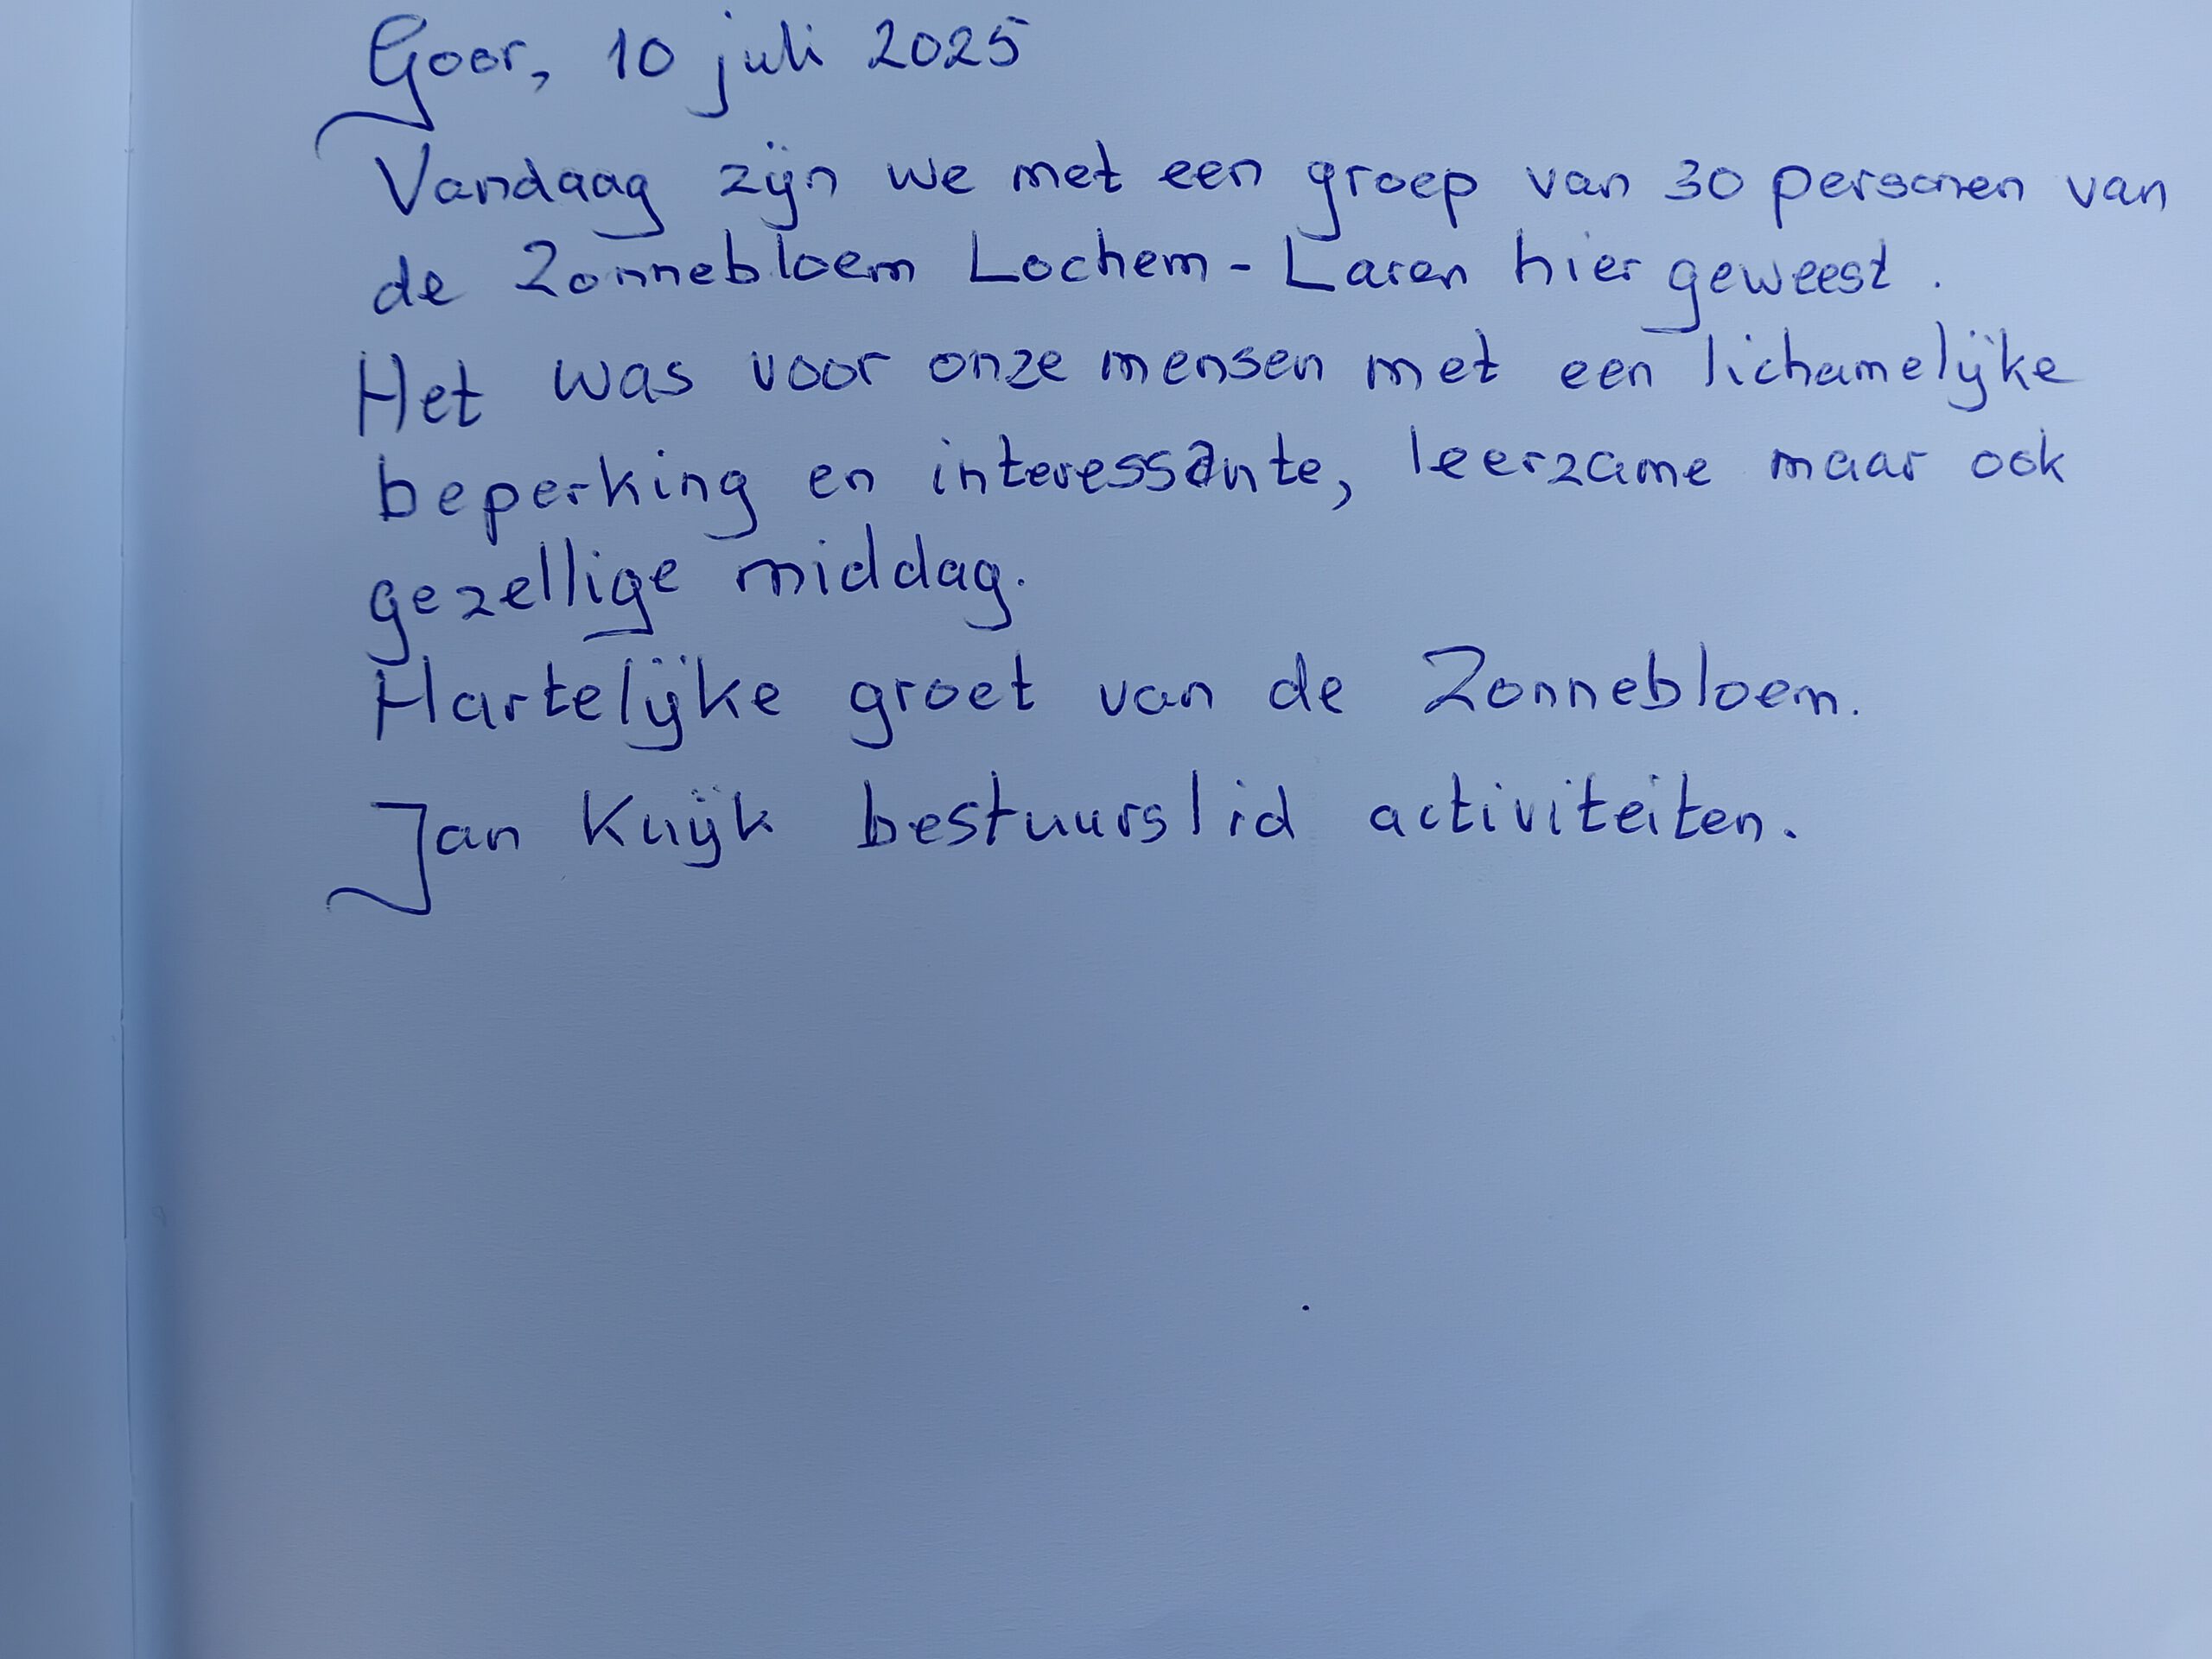 Goor, 10 juli 2025
Vandaag zijn we met een groep van 30 personen van
de Zonnebloem Lochem - Laren hier geweest.
Het was voor onze mensen met een lichamelijke
beperking en interessante, leerzame maar ook
gezellige middag.
Hartelijke groet van de Zonnebloem.
Jan Kuijk bestuurslid activiteiten.